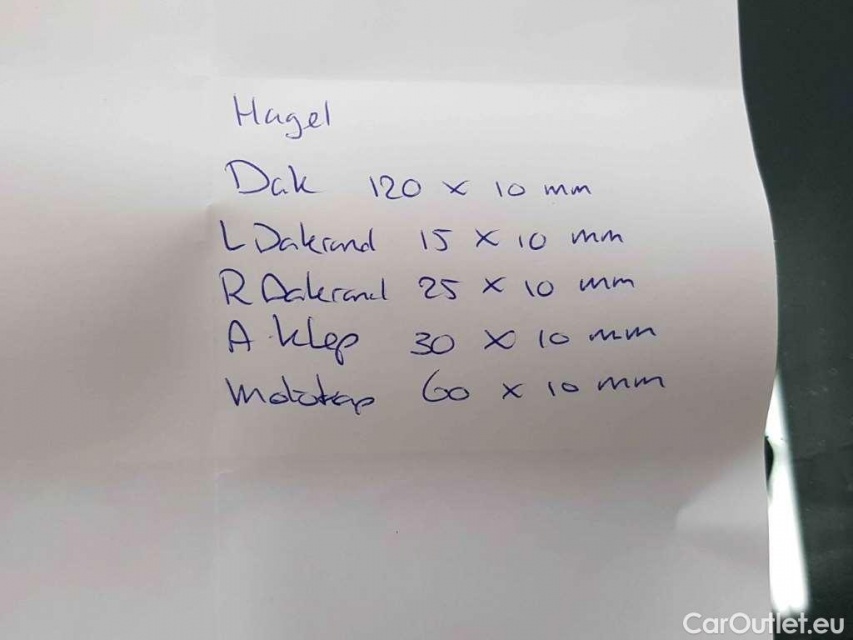 Hagel
Dak 120 x 10 mm
L Dakrand 15 x 10 mm
R Dakrand 25 x 10 mm
A klep 30 x 10 mm
Motorkap 60 x 10 mm
CarOutlet.eu